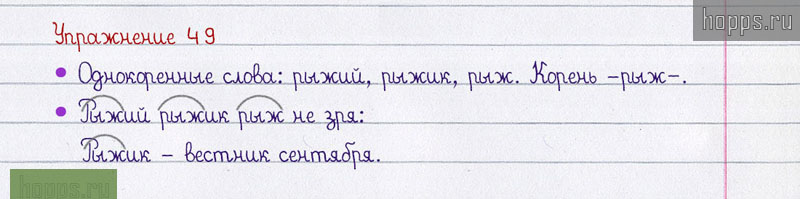 hopps.ru
Упражнение 49
• Однокоренные слова: рыжий, рыжик, рыж. Корень –рыж–.
• Рыжий рыжик рыж не зря:
Рыжик – вестник сентября.
hopps.ru